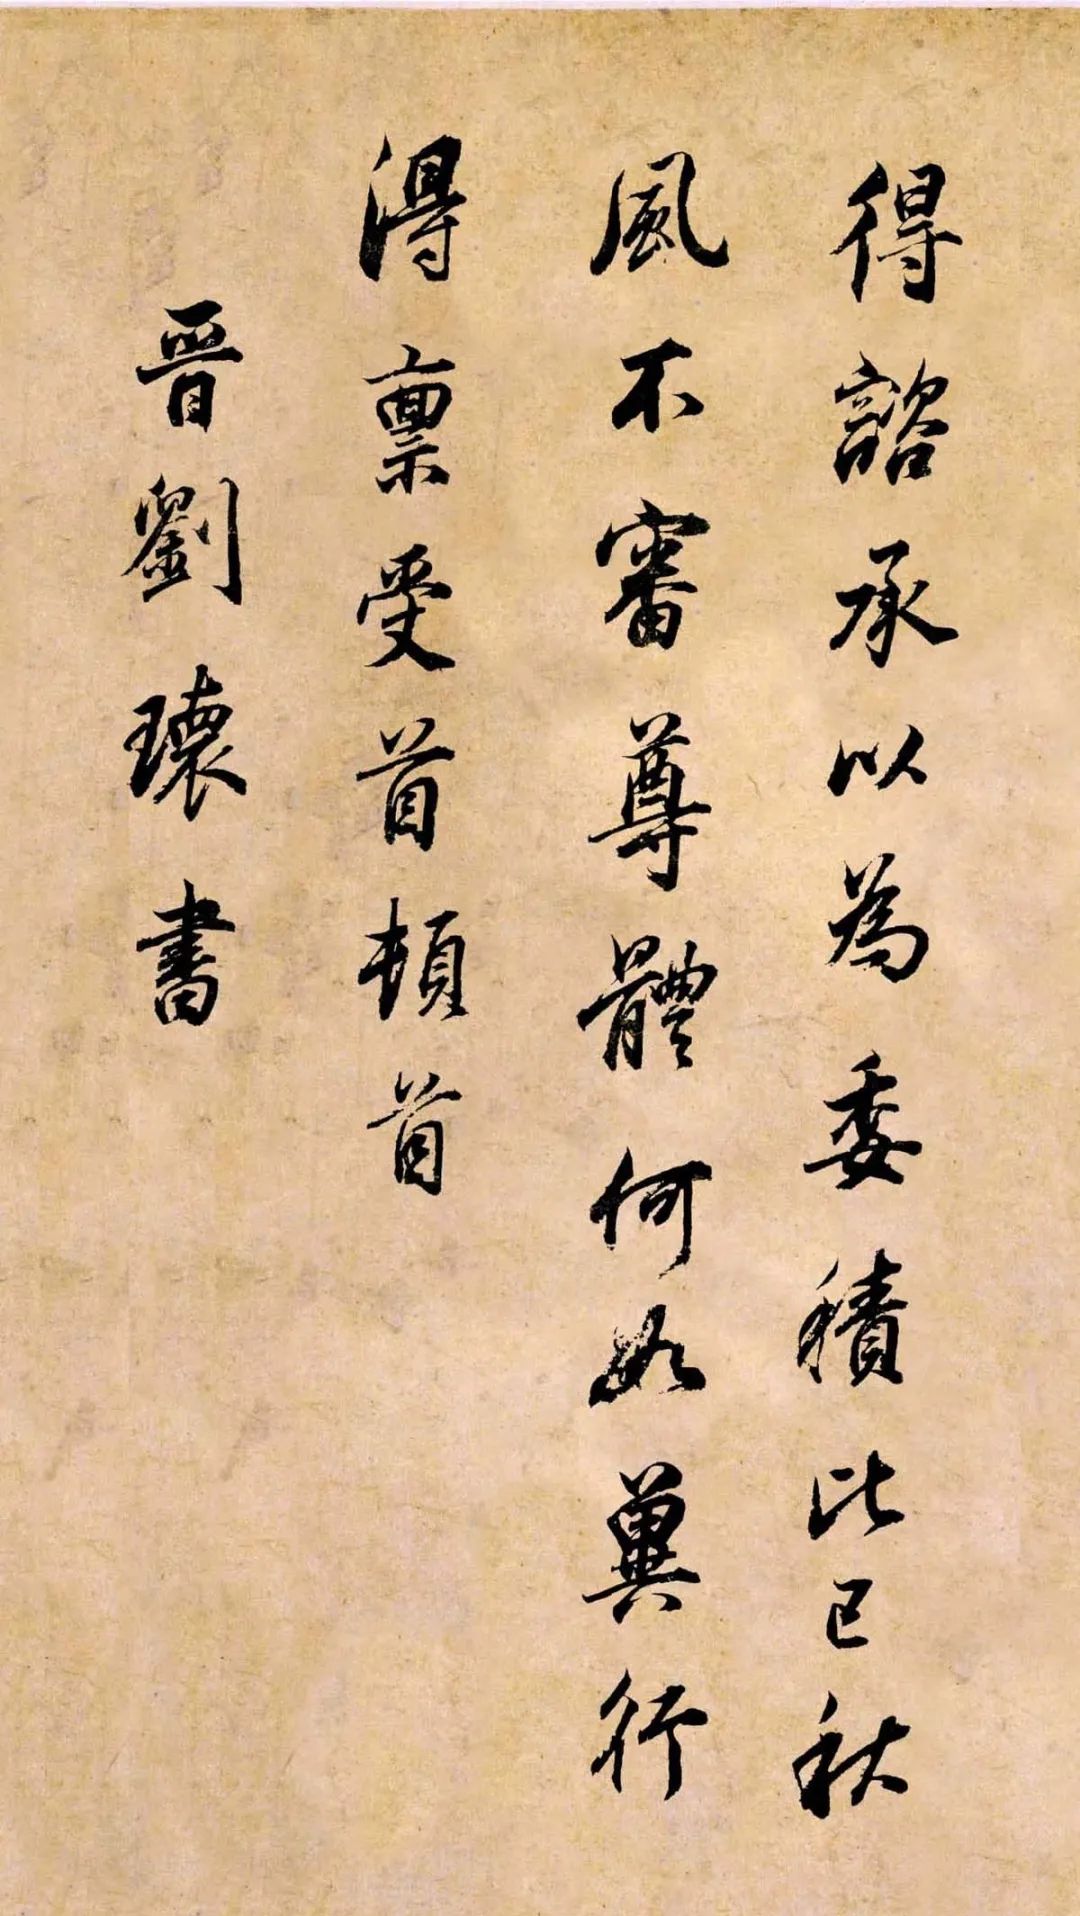 得諮承以為委積比已秋
風不審尊體何如冀行
淂禀受首頓首
晉劉瓌書